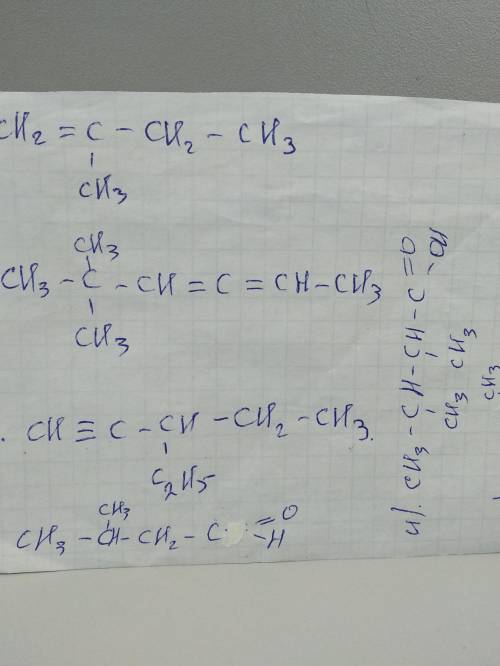 CH2 = C - CH2 - CH3
CH3
CH3
CH3 - C - CH = C = CH - CH3
CH3
. CH ≡ C - CH - CH2 - CH3.
C2H5
CH3
CH3 - CH - CH2 - C =O
-H
и). CH3 - CH - CH - C =O
-OH
CH3 CH3
CH3